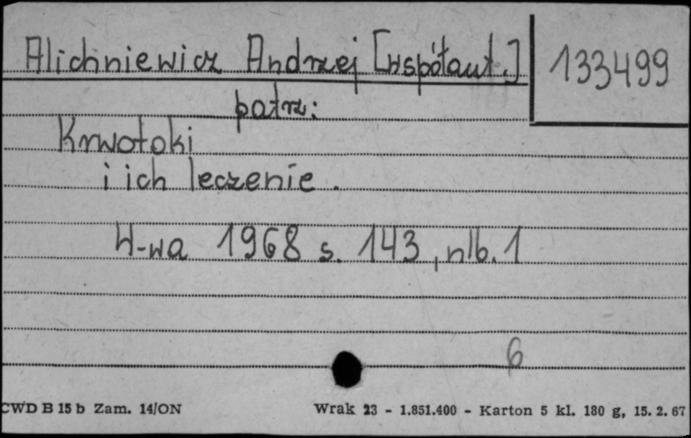 Alichniewicz Andrzej [współaut.]
133499
patrz:
Krwotoki
i ich leczenie.
W-wa 1968 s. 143, nlb. 1
6
CWD B 15 b Zam. 14/ON
Wrak 23 - 1.851.400 - Karton 5 kl. 180 g, 15. 2. 67